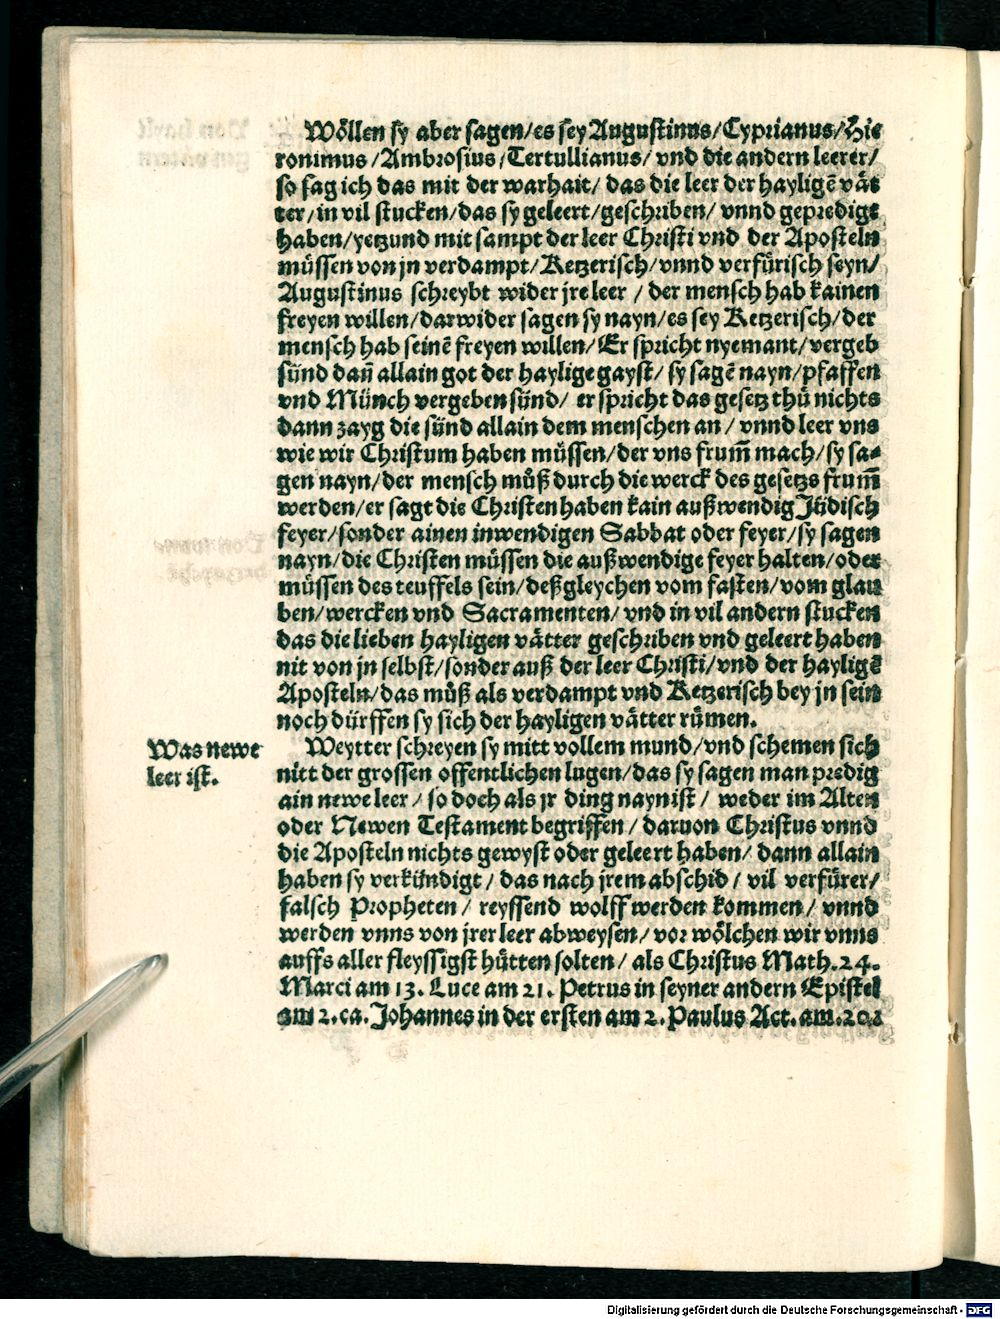 Wöllen sy aber sagen/es sey Augustinus/Cyprianus/Hie
ronimus/Ambrosius/Tertullianus/vnd die andern leerer/
so sag ich das mit der warhait/das die leer der hayligē vät
ter/in vil stucken/das sy geleert/geschriben/vnnd gepredigt
haben/yetzund mit sampt der leer Christi vnd der Aposteln
müssen von jn verdampt/Ketzerisch/vnnd verfürisch seyn/
Augustinus schreybt wider jre leer/der mensch hab kainen
freyen willen/darwider sagen sy nayn/es sey Ketzerisch/der
mensch hab seinē freyen willen/Er spricht nyemant/vergeb
sünd dañ allain got der haylige gayst/sy sagē nayn/pfaffen
vnd Münch vergeben sünd/er spricht das gesetz thů nichts
dann zayg die sünd allain dem menschen an/vnnd leer vns
wie wir Christum haben müssen/der vns frum̄ mach/sy sa-
gen nayn/der mensch můß durch die werck des gesetzs frum̄
werden/er sagt die Christen haben kain außwendig Jüdisch
feyer/sonder ainen inwendigen Sabbat oder feyer/sy sagen
nayn/die Christen müssen die außwendige feyer halten/oder
müssen des teuffels sein/deßgleychen vom fasten/vom glau
ben/wercken vnd Sacramenten/vnd in vil andern stucken
das die lieben hayligen vätter geschriben vnd geleert haben
nit von jn selbst/sonder auß der leer Christi/vnd der hayligē
Aposteln/das můß als verdampt vnd Ketzerisch bey jn sein
noch dürffen sy sich der hayligen vätter rümen.
Was newe
leer ist.
Weytter schreyen sy mitt vollem mund/vnd schemen sich
nitt der grossen offentlichen lugen/das sy sagen man predig
ain newe leer/so doch als jr ding nayn ist/weder im Alten
oder Newen Testament begriffen/daruon Christus vnnd
die Aposteln nichts gewyst oder geleert haben/dann allain
haben sy verkündigt/das nach jrem abschid/vil verfürer/
falsch Propheten/reyssend wolff werden kommen/vnnd
werden vnns von jrer leer abweysen/vor wölchen wir vnns
auffs aller fleyssigst hütten solten/als Christus Math.24.
Marci am 13. Luce am 21. Petrus in seyner andern Epistel
am 2.ca. Johannes in der ersten am 2. Paulus Act. am.20.
Digitalisierung gefördert durch die Deutsche Forschungsgemeinschaft - DFG